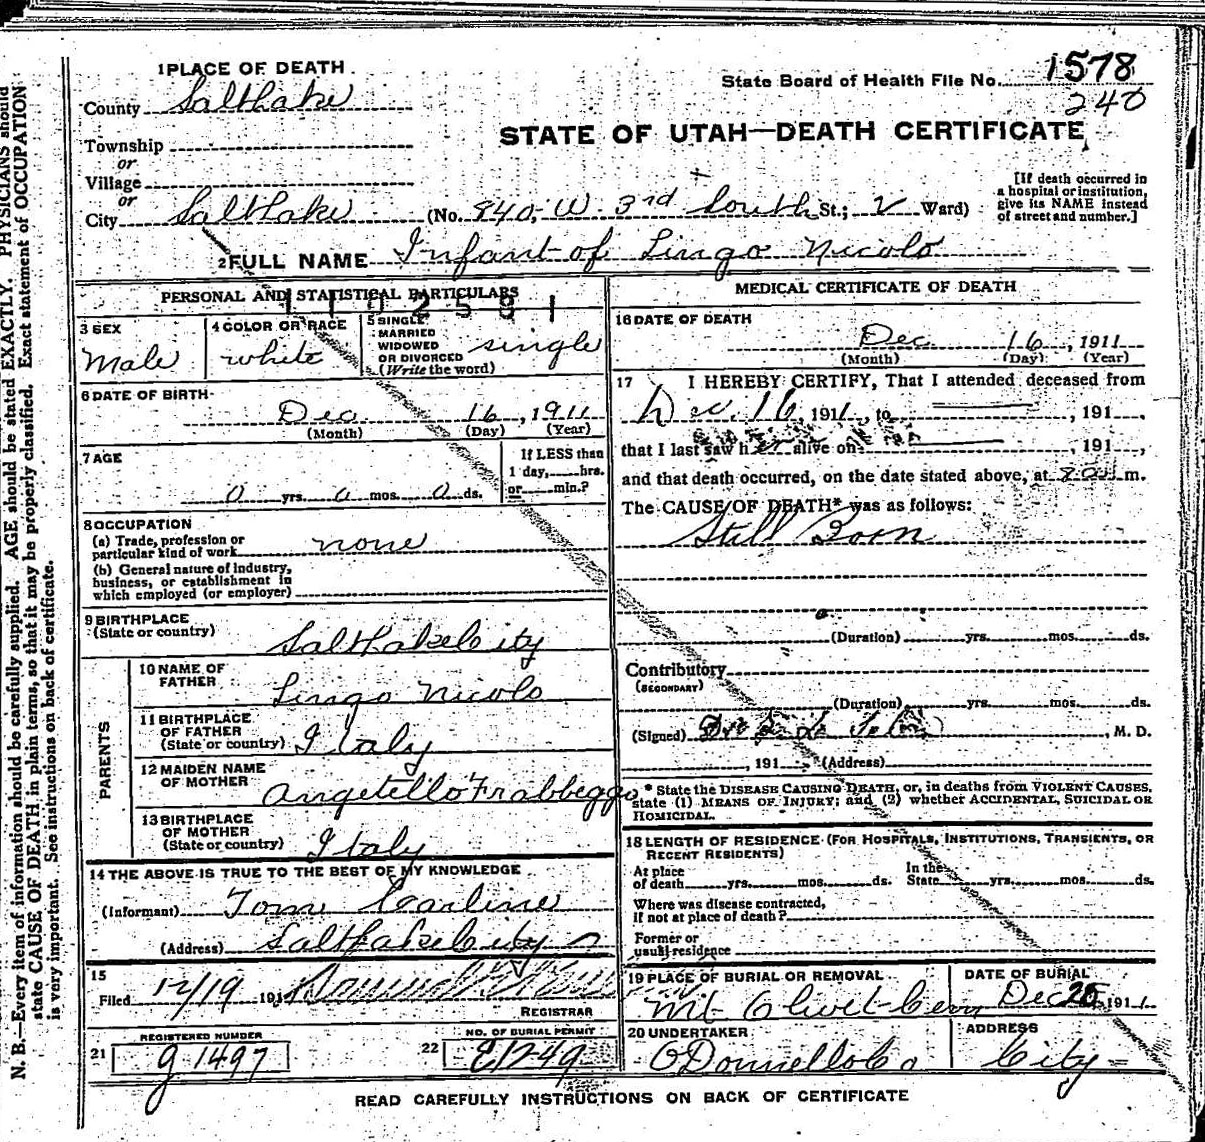 1 PLACE OF DEATH
State Board of Health File No. 1578
240
County Salt Lake
STATE OF UTAH—DEATH CERTIFICATE
Township
or
Village
or
City Salt Lake (No. 840, W. 3rd South St.; 2 Ward)
[If death occurred in
a hospital or institution,
give its NAME instead
of street and number.]
2 FULL NAME Infant of Lingo Nicolo
PERSONAL AND STATISTICAL PARTICULARS
3 SEX
Male
4 COLOR OR RACE
white
5 SINGLE
MARRIED
WIDOWED
OR DIVORCED
(Write the word)
single
6 DATE OF BIRTH
Dec 16, 1911
(Month) (Day) (Year)
7 AGE
If LESS than
1 day, hrs.
or min.?
0 yrs. 0 mos. 0 ds.
8 OCCUPATION
(a) Trade, profession or
particular kind of work none
(b) General nature of industry,
business, or establishment in
which employed (or employer)
9 BIRTHPLACE
(State or country)
Salt Lake City
PARENTS
10 NAME OF
FATHER
Lingo Nicolo
11 BIRTHPLACE
OF FATHER
(State or country) Italy
12 MAIDEN NAME
OF MOTHER
Angetello Frabbeggo
13 BIRTHPLACE
OF MOTHER
(State or country) Italy
14 THE ABOVE IS TRUE TO THE BEST OF MY KNOWLEDGE
(Informant) Tom Carline
(Address) Salt Lake City
15
Filed 12/19 191
REGISTRAR
REGISTERED NUMBER
21 g 1497
NO. OF BURIAL PERMIT
22 E1249
MEDICAL CERTIFICATE OF DEATH
16 DATE OF DEATH
Dec 16, 1911
(Month) (Day) (Year)
17 I HEREBY CERTIFY, That I attended deceased from
Dec. 16, 1911, to , 191 ,
that I last saw h alive on , 191 ,
and that death occurred, on the date stated above, at m.
The CAUSE OF DEATH* was as follows:
Still Born
(Duration) yrs. mos. ds.
Contributory
(SECONDARY)
(Duration) yrs. mos. ds.
(Signed) , M. D.
, 191 (Address)
* State the DISEASE CAUSING DEATH, or, in deaths from VIOLENT CAUSES,
state (1) MEANS OF INJURY; and (2) whether ACCIDENTAL, SUICIDAL OR
HOMICIDAL.
18 LENGTH OF RESIDENCE (FOR HOSPITALS, INSTITUTIONS, TRANSIENTS, OR
RECENT RESIDENTS)
At place
of death yrs. mos. ds.
In the
State yrs. mos. ds.
Where was disease contracted,
if not at place of death?
Former or
usual residence
19 PLACE OF BURIAL OR REMOVAL
Mt Olivet Cem
DATE OF BURIAL
Dec 20, 1911
20 UNDERTAKER
O'Donnell & Co
ADDRESS
City
READ CAREFULLY INSTRUCTIONS ON BACK OF CERTIFICATE
N. B.—Every item of information should be carefully supplied. AGE should be stated EXACTLY. PHYSICIANS should
state CAUSE OF DEATH in plain terms, so that it may be properly classified. Exact statement of OCCUPATION
is very important. See instructions on back of certificate.